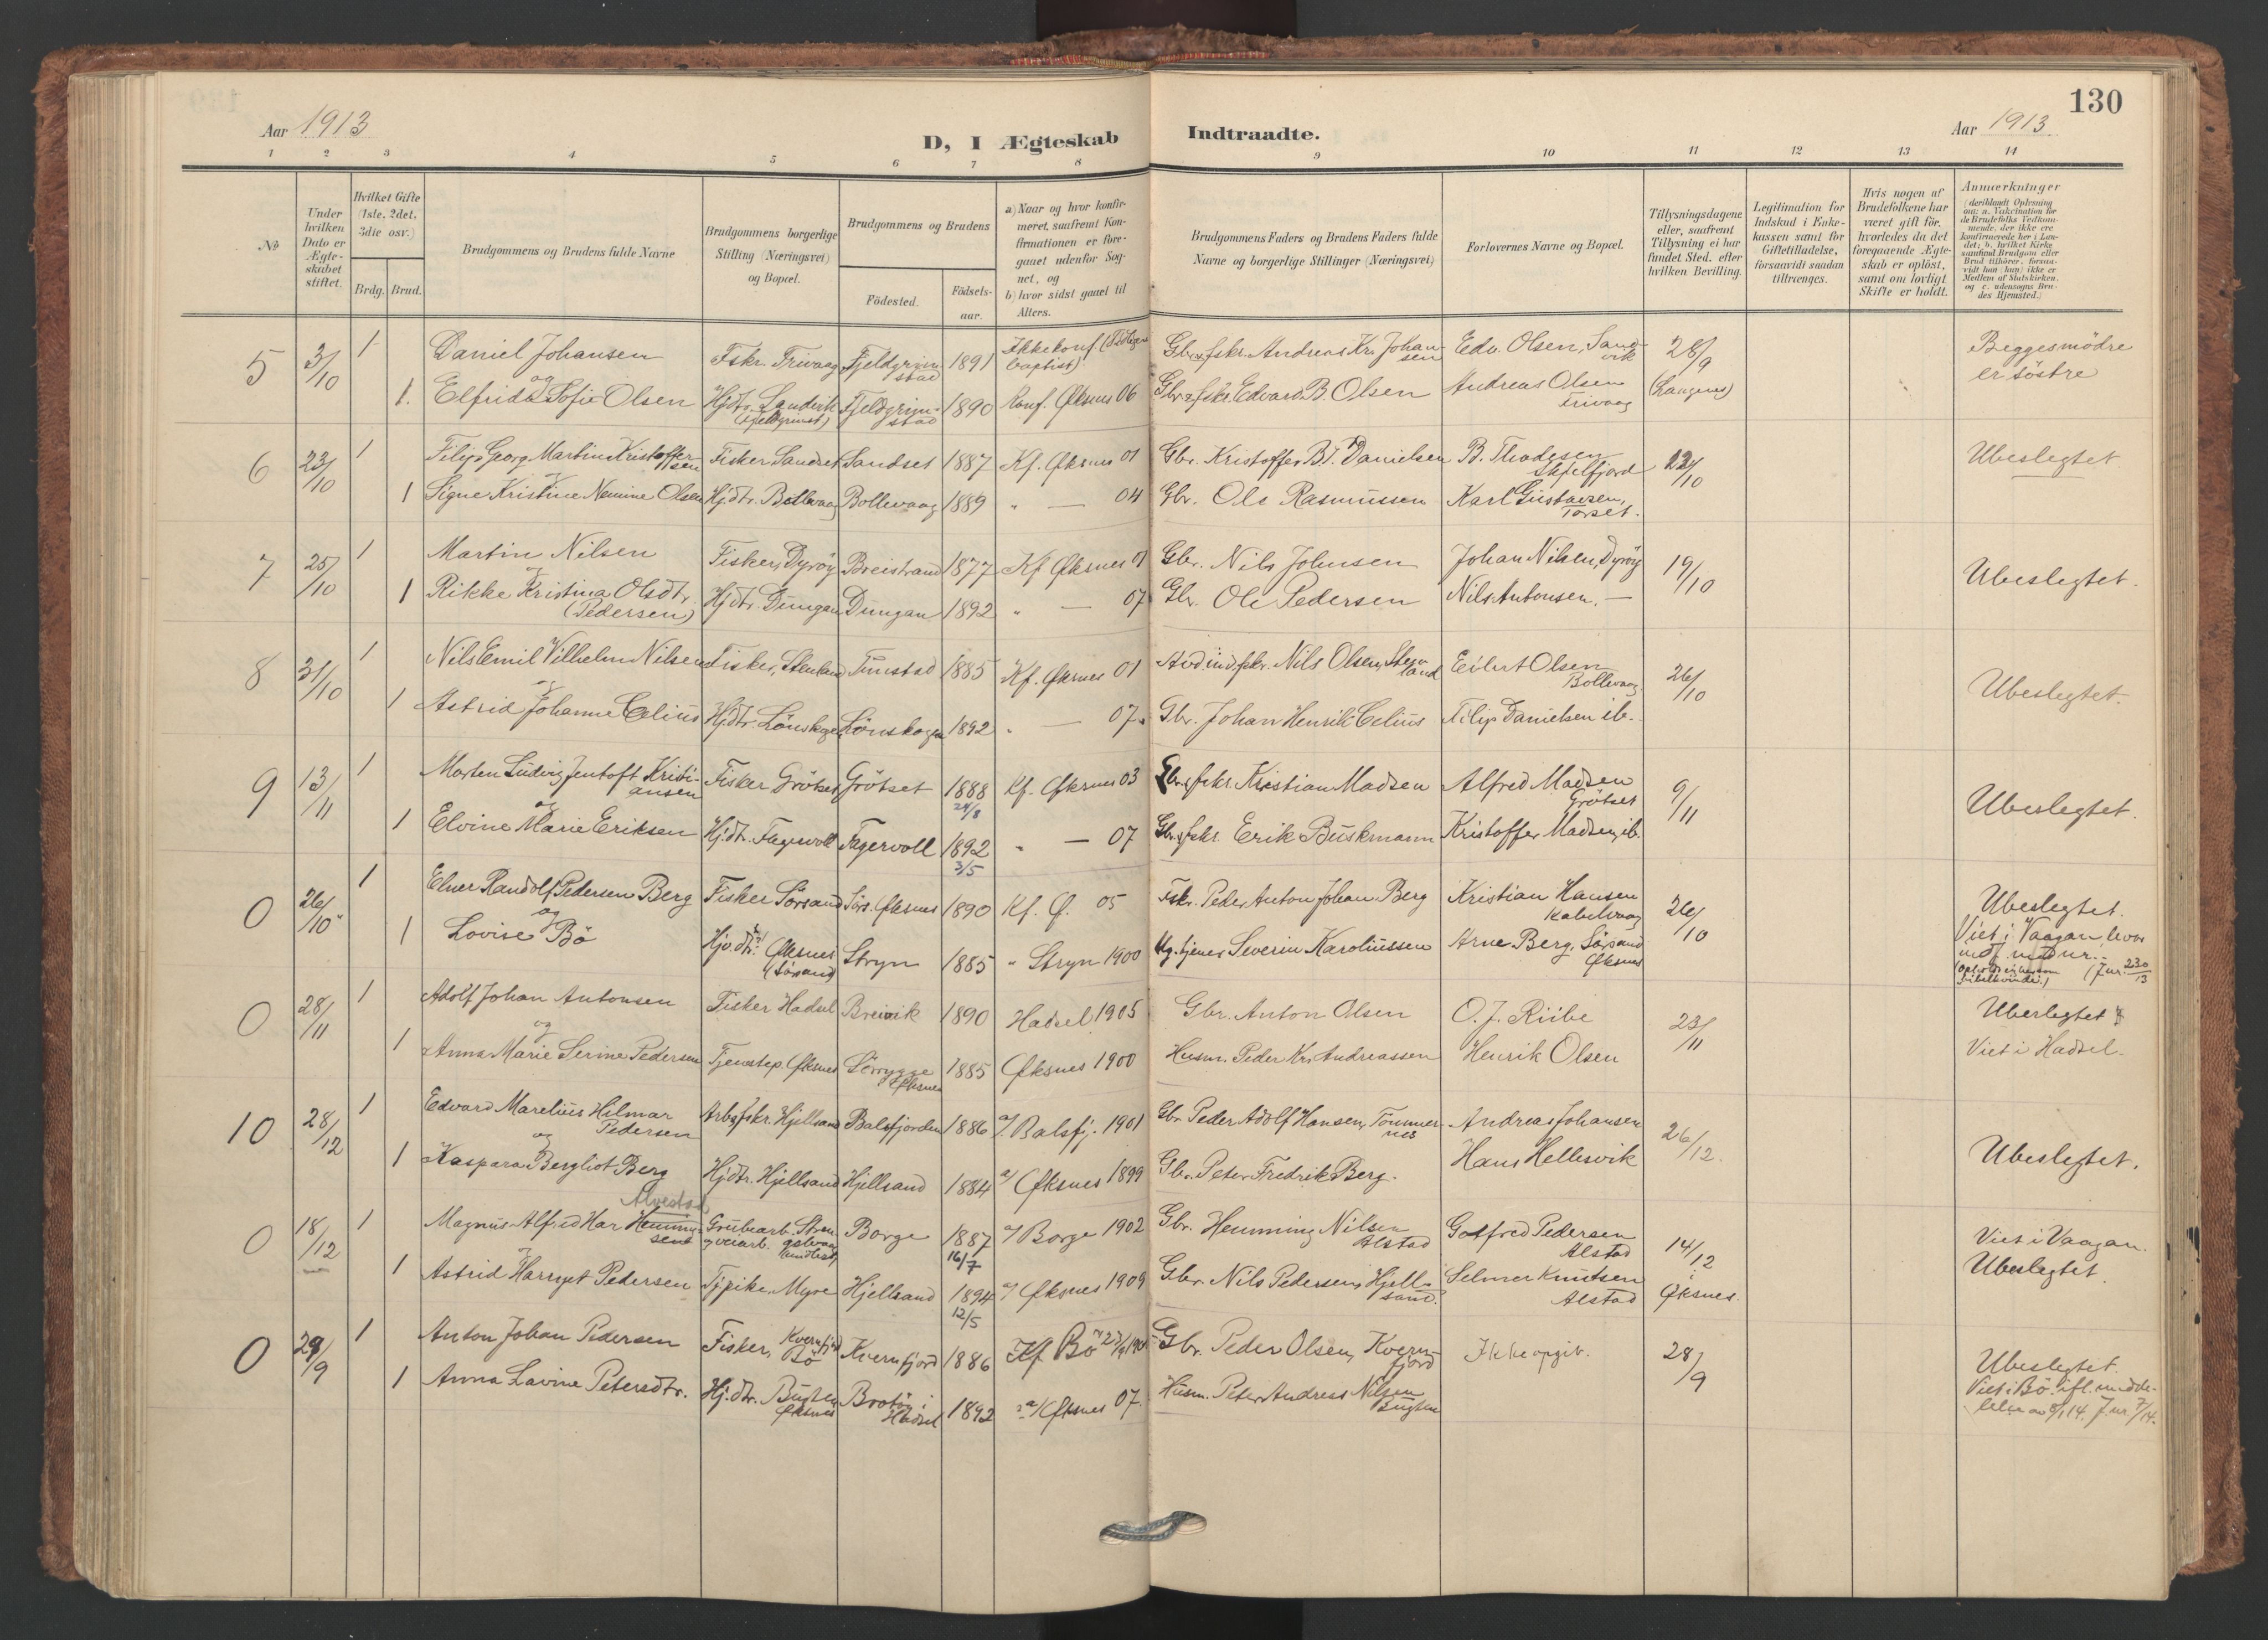 130
Aar 1913
D, I Ægteskab Indtraadte.
Aar 1913
1 2 3 4 5 6 7 8 9 10 11 12 13 14
No
Under hvilken Dato er Ægteskabet stiftet.
Hvilket Gifte (1ste, 2det, 3die osv.)
Brdg. Brud.
Brudgommens og Brudens fulde Navne
Brudgommens borgerlige Stilling (Næringsvei) og Bopæl.
Brudgommens og Brudens
Födested.
Födselsaar.
a) Naar og hvor konfirmeret, saafremt Konfirmationen er foregaaet udenfor Sognet, og
b) hvor sidst gaaet til Alters.
Brudgommens Faders og Brudens Faders fulde Navne og borgerlige Stillinger (Næringsvei)
Forlovernes Navne og Bopæl.
Tillysningsdagene eller, saafremt Tillysning ei har fundet Sted, efter hvilken Bevilling.
Legitimation for Indskud i Enkekassen samt for Giftetilladelse, forsaavidt saadan tiltrænges.
Hvis nogen af Brudefolkene har været gift för, hvorledes da det foregaaende Ægteskab er oplöst, samt om lovligt Skifte er holdt.
Anmærkninger (deriblandt Oplysning om: a. Vakcination for de Brudefolks Vedkommende, der ikke ere konfirmerede her i Landet; b. hvilket Kirkesamfund Brudgom eller Brud tilhörer, forsaavidt han (hun) ikke er Medlem af Statskirken, og c. udensogns Brudes Hjemsted.)
5 3/10 1 Daniel Johansen Fskr. Trivaag Fjeldgrimstad 1891 Ikke konf. (Tidligere baptist) Gbr. & fskr. Andreas Kr. Johansen Edv. Olsen, Sandvik 28/9 Begges mödre er söstre
og
1. Elfrida Sofie Olsen Hjdtr. Sandvik (Fjeldgrimst) Fjeldgrimstad 1890 Konf. Øksnes 06 Gbr. & fskr. Edvard B. Olsen Andreas Olsen Trivaag (Langenes)
6 23/10 1 Filip Georg Martin Kristoffersen Fisker Sandset Sandset 1887 Kf. Øksnes 01 Gbr. Kristoffer B. T. Danielsen B. Thodesen Skjelfjord 22/10 Ubeslegtet
og
1 Signe Kristine Nemine Olsen Hjdtr. Bollevaag Bollevaag 1889 " — 04 Gbr. Ole Rasmussen Karl Gustavsen, Torset.
7 25/10 1 Martin Nilsen Fisker, Dyröy Breistrand 1877 Kf Øksnes 91 Gbr. Nils Johnsen Johan Nilsen, Dyröy 19/10 Ubeslegtet.
og
1 Rikke Kristina Olsdtr. (Pedersen) Hjdtr. Dungan Dungan 1892 " — 07 Gbr. Ole Pedersen Nils Antonsen, —
8 31/10 1 Nils Emil Vilhelm Nilsen Fisker, Stenland Tunstad 1885 Kf. Øksnes 01 Nils Olsen, Stenland Eilert Olsen Bollevaag 26/10 Ubeslegtet.
og
1 Astrid Johanne Celius Hjdtr. Lönskogen Lönskogen 1892 " — 07. Gbr. Johan Henrik Celius Filip Danielsen ib.
9 13/11 1 Morten Ludvig Jentoft Kristiansen Fisker Grötset Grötset 1888 24/8 Kf. Øksnes 03 Gbr. & fskr. Kristian Madsen Alfred Madsen Grötset 9/11 Ubeslegtet.
og
1 Elvine Marie Eriksen Hjdtr. Fagervoll Fagervoll 1892 3/5 " — 07 Gbr. & fskr. Erik Buskmann Kristoffer Madsen, ib.
0 26/10 1 Elner Randolf Pedersen Berg Fisker Sörsand Sörs. Øksnes 1890 Kf. Ø. 05 Fskr. Peder Anton Johan Berg Kristian Hansen Kabelvaag 26/10 Ubeslegtet.
og
1 Lovise Bö Øksnes (Sörsand) Stryn 1885 " Stryn 1900 Severin Karoliussen Arne Berg, Sörsand Øksnes Viet i Vaagan, hvor
0 28/11 1 Adolf Johan Antonsen Fisker Hadsel Breivik 1890 Hadsel 1905 Gbr. Anton Olsen O. J. Riibe 23/11 Ubeslegtet
og
1 Anna Marie Serine Pedersen Tjenstep. Øksnes Sörrygge Øksnes 1885 Øksnes 1900 Husm. Peder Kr. Andreassen Henrik Olsen Viet i Hadsel.
10 28/12 1 Edvard Marelius Hilmar Pedersen Arb. & fskr. Hjellsand Balsfjorden 1886 a/ Balsfj. 1901 Gbr. Peder Adolf Hansen, Tömmernes Andreas Johansen 26/12. Ubeslegtet.
og
1 Kaspara Bergliot Berg Hjdtr. Hjellsand Hjellsand 1884 a/ Øksnes 1899 Gbr. Peter Fredrik Berg. Hans Hellesvik
Alvestad
0 18/12 1 Magnus Alfred Har Hemmingsen Grubearb. & veiarb. Borge 1887 16/7 a/ Borge 1902 Gbr. Hemming Nilsen Alstad Gotfred Pedersen Alstad 14/12 i Øksnes. Viet i Vaagan.
og
1 Astrid Harryet Pedersen Tjpike, Myre Hjellsand 1894 12/5 a/ Øksnes 1909 Gbr. Nils Pedersen, Hjellsand. Selmer Knutsen Alstad Ubeslegtet.
0 29/9 1 Anton Johan Pedersen Fisker, Kvernfjord Bö Kvernfjord 1886 Kf Bö Gbr. Peder Olsen, Kvernfjord Ikke opgit. 28/9 Ubeslegtet.
1 Anna Lavine Petersdtr. Hj.dtr. Bugten Øksnes Brotöy i Hadsel 1892 a/ Øksnes 07. Husm. Peter Andreas Nilsen Bugten Viet i Bö ifl. meddelelse av 5/1 14. Jur. 7/14.